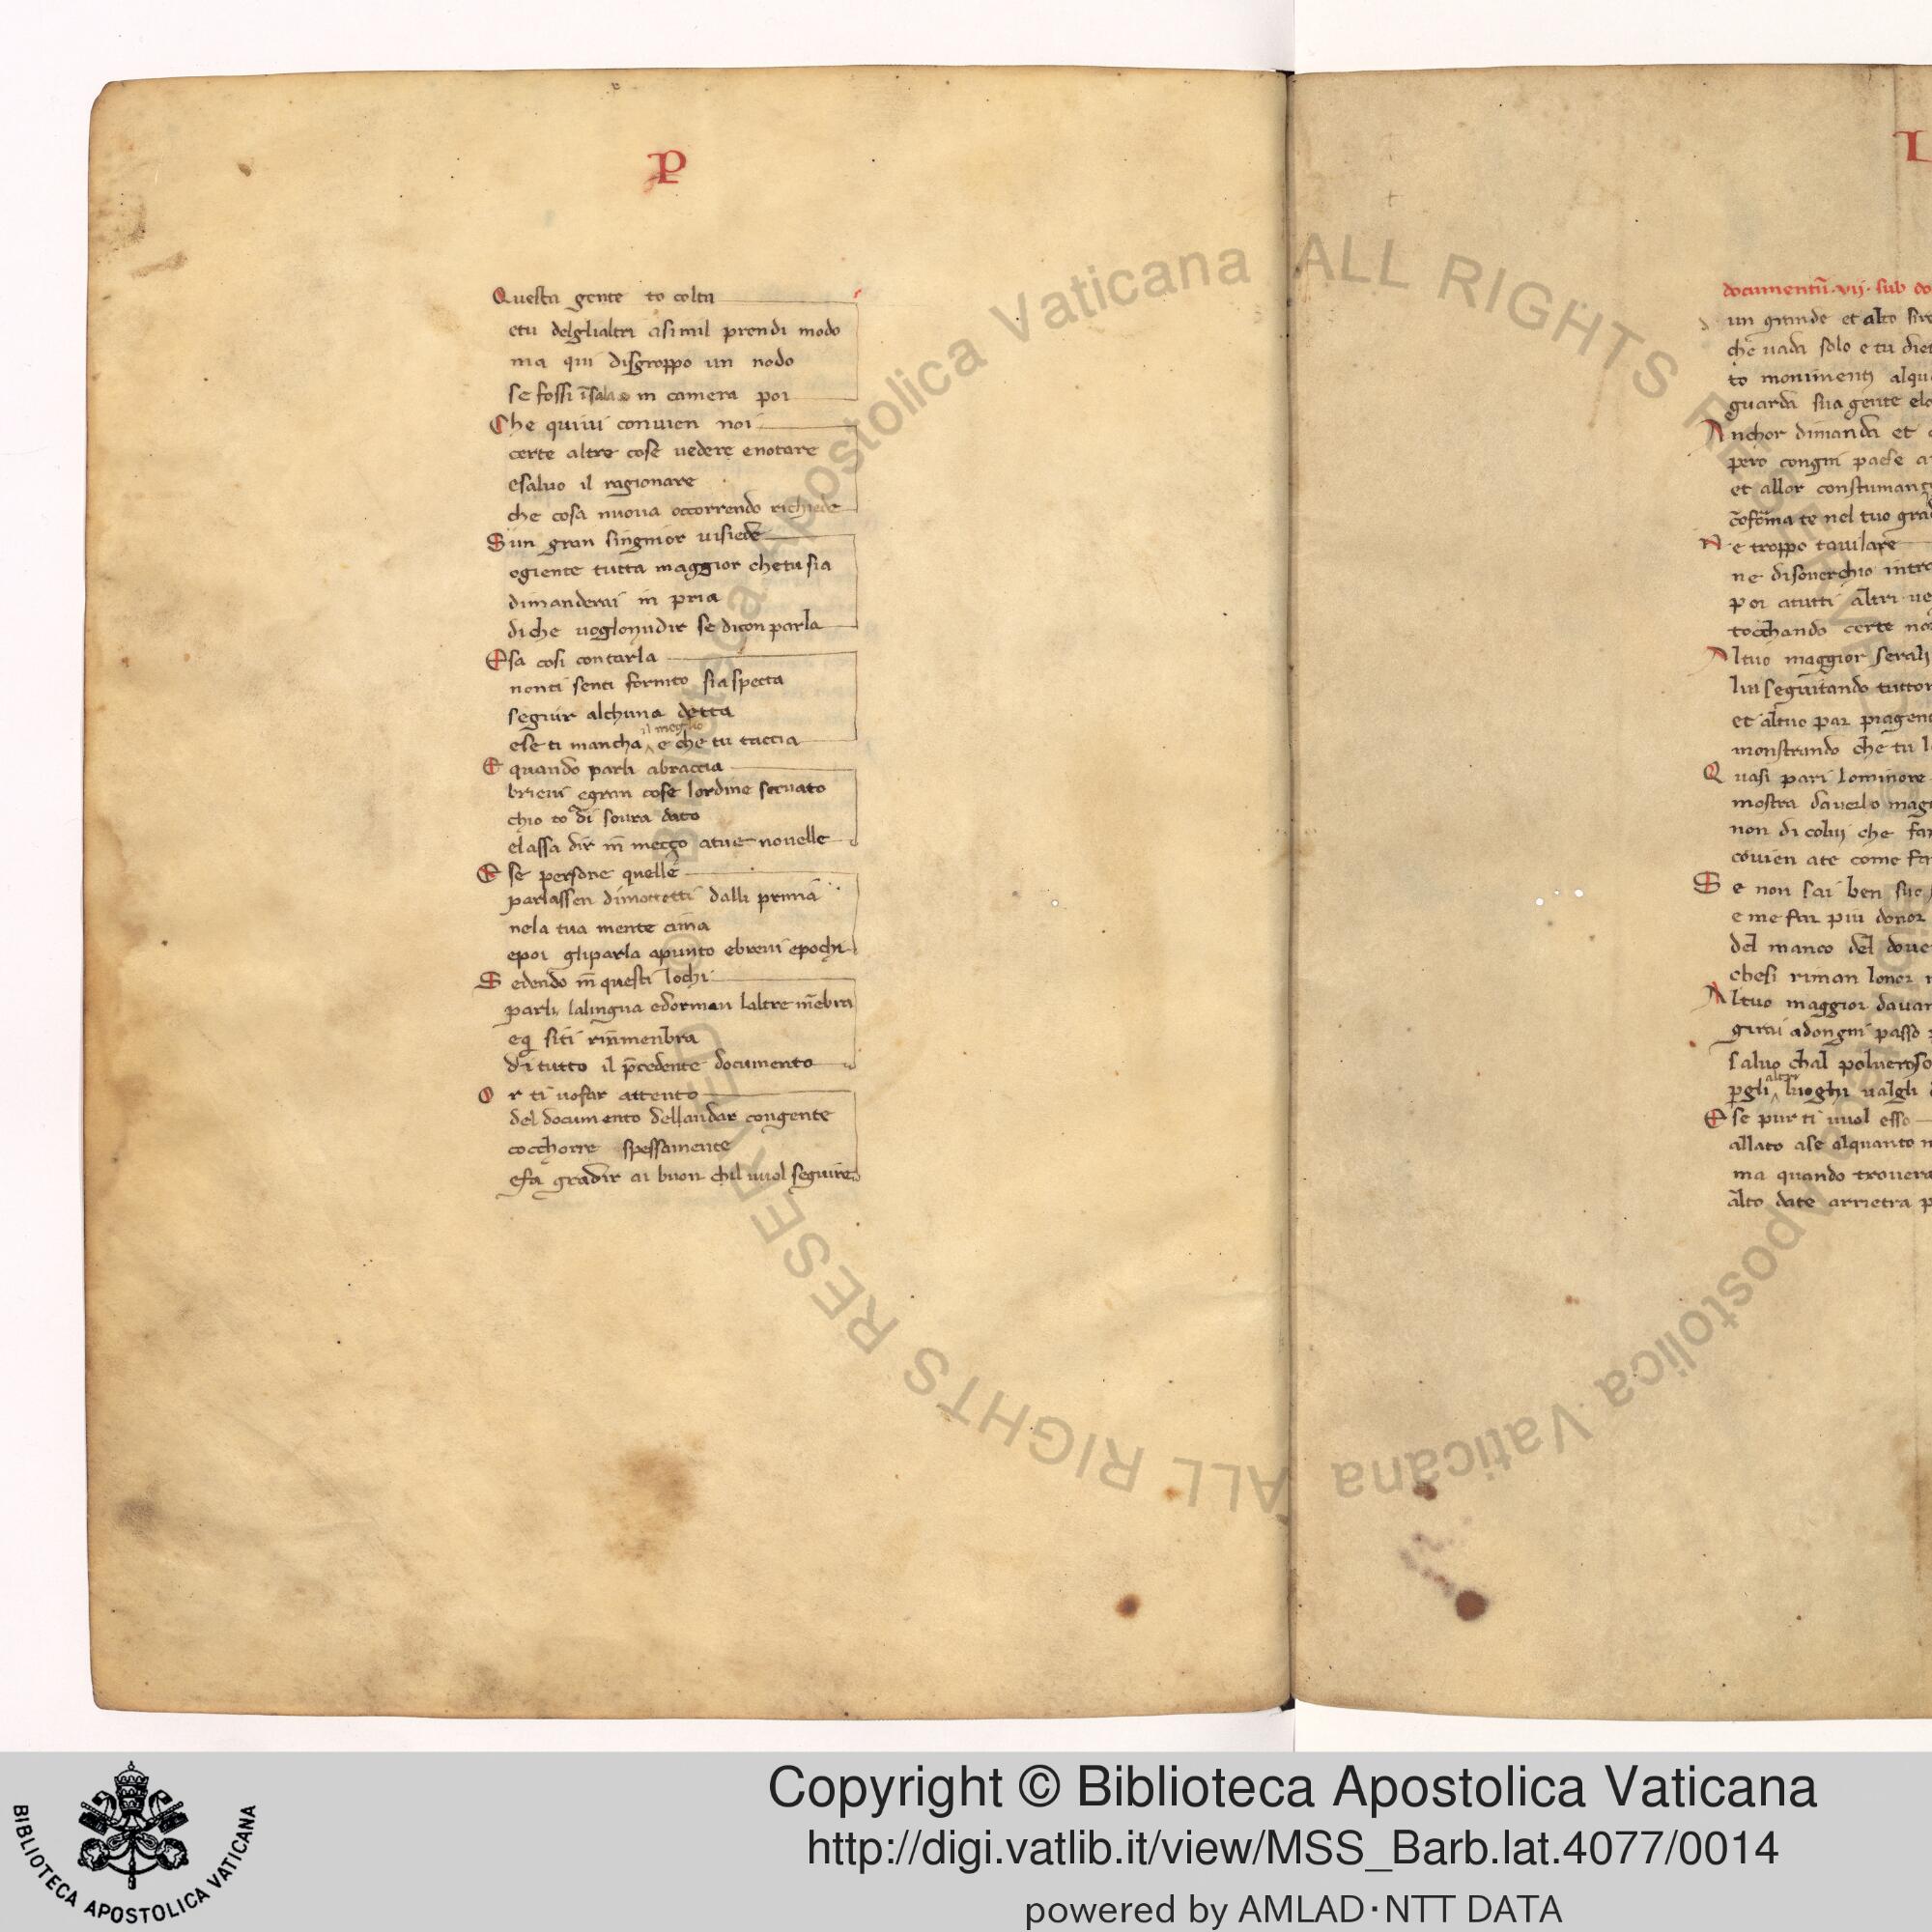 P
Questa gente to colta
etu delglialtri asimil prendi modo
ma qui disgroppo un nodo
se fossi ĩsala o in camera poi
Che quiui conuien noi
certe altre cose uedere enotare
esaluo il ragionare
che cosa nuoua occorrendo richiede
Sun gran singnior uisiede
ogiente tutta maggior chetu sia
dimanderai in pria
di che uoglonudir se dicon parla
Esa cosi contarla
nonti senti fornito sia specta
seguir alchuna detta
ese ti mancha il meglio e che tu taccia
E quando parli abraccia
brieui egran cose lordine seruato
chio to di soura dato
elassa dir in meççο atue nouelle
E se persone quelle
parlassen dimottetti dalli prima
nela tua mente cima
epoi gliparla apunto ebreui epochi
Sedendo in questi lochi
parli lalingua edorman laltre mẽbra
eq siti rinmenbra
di tutto il p̃cedente documento
Or ti uofar attento
del documento dellandar congente
cocchorre spessamente
efa gradir ai buon chil uuol seguire
L
documentũ .vij. sub do
un grande et alto sire
che uada solo e tu diet
to mouimenti alqu
guarda sua gente elo
Anchor dimanda et
pero congni paese a
et allor constumanç
cõfoma te nel tuo grad
Ne troppo tauilare
ne disouerchio intra
poi atutti altri ue
tocchando certe no
Altuo maggior serali
lui seguitando tuttor
et altuo par piagent
monstrando che tu l
Quasi pari lominore
mostra dauerlo mag
non di colui che fa
cõuien ate come fa
Se non sai ben suo
e me far piu donor
del manco del doue
chesi riman lonor
Altuo maggior dauan
girai adongni passo
saluo chal polueroso
pgli altri luoghi ualgli
E se pur ti uuol esso
allato ase alquanto
ma quando trouera
alto date arrietra p
Copyright © Biblioteca Apostolica Vaticana
http://digi.vatlib.it/view/MSS_Barb.lat.4077/0014
powered by AMLAD·NTT DATA
BIBLIOTECA APOSTOLICA VATICANA
© Biblioteca Apostolica Vaticana ALL RIGHTS RESERVED
© Biblioteca Apostolica Vaticana ALL RIGHTS RESERVED